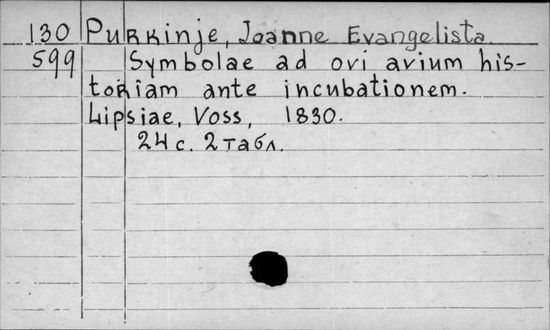 130 Purkinje, Joanne Evangelista.
599 Symbolae ad ovi avium his-
toriam ante incubationem.
Lipsiae, Voss, 1830.
24 с. 2 табл.